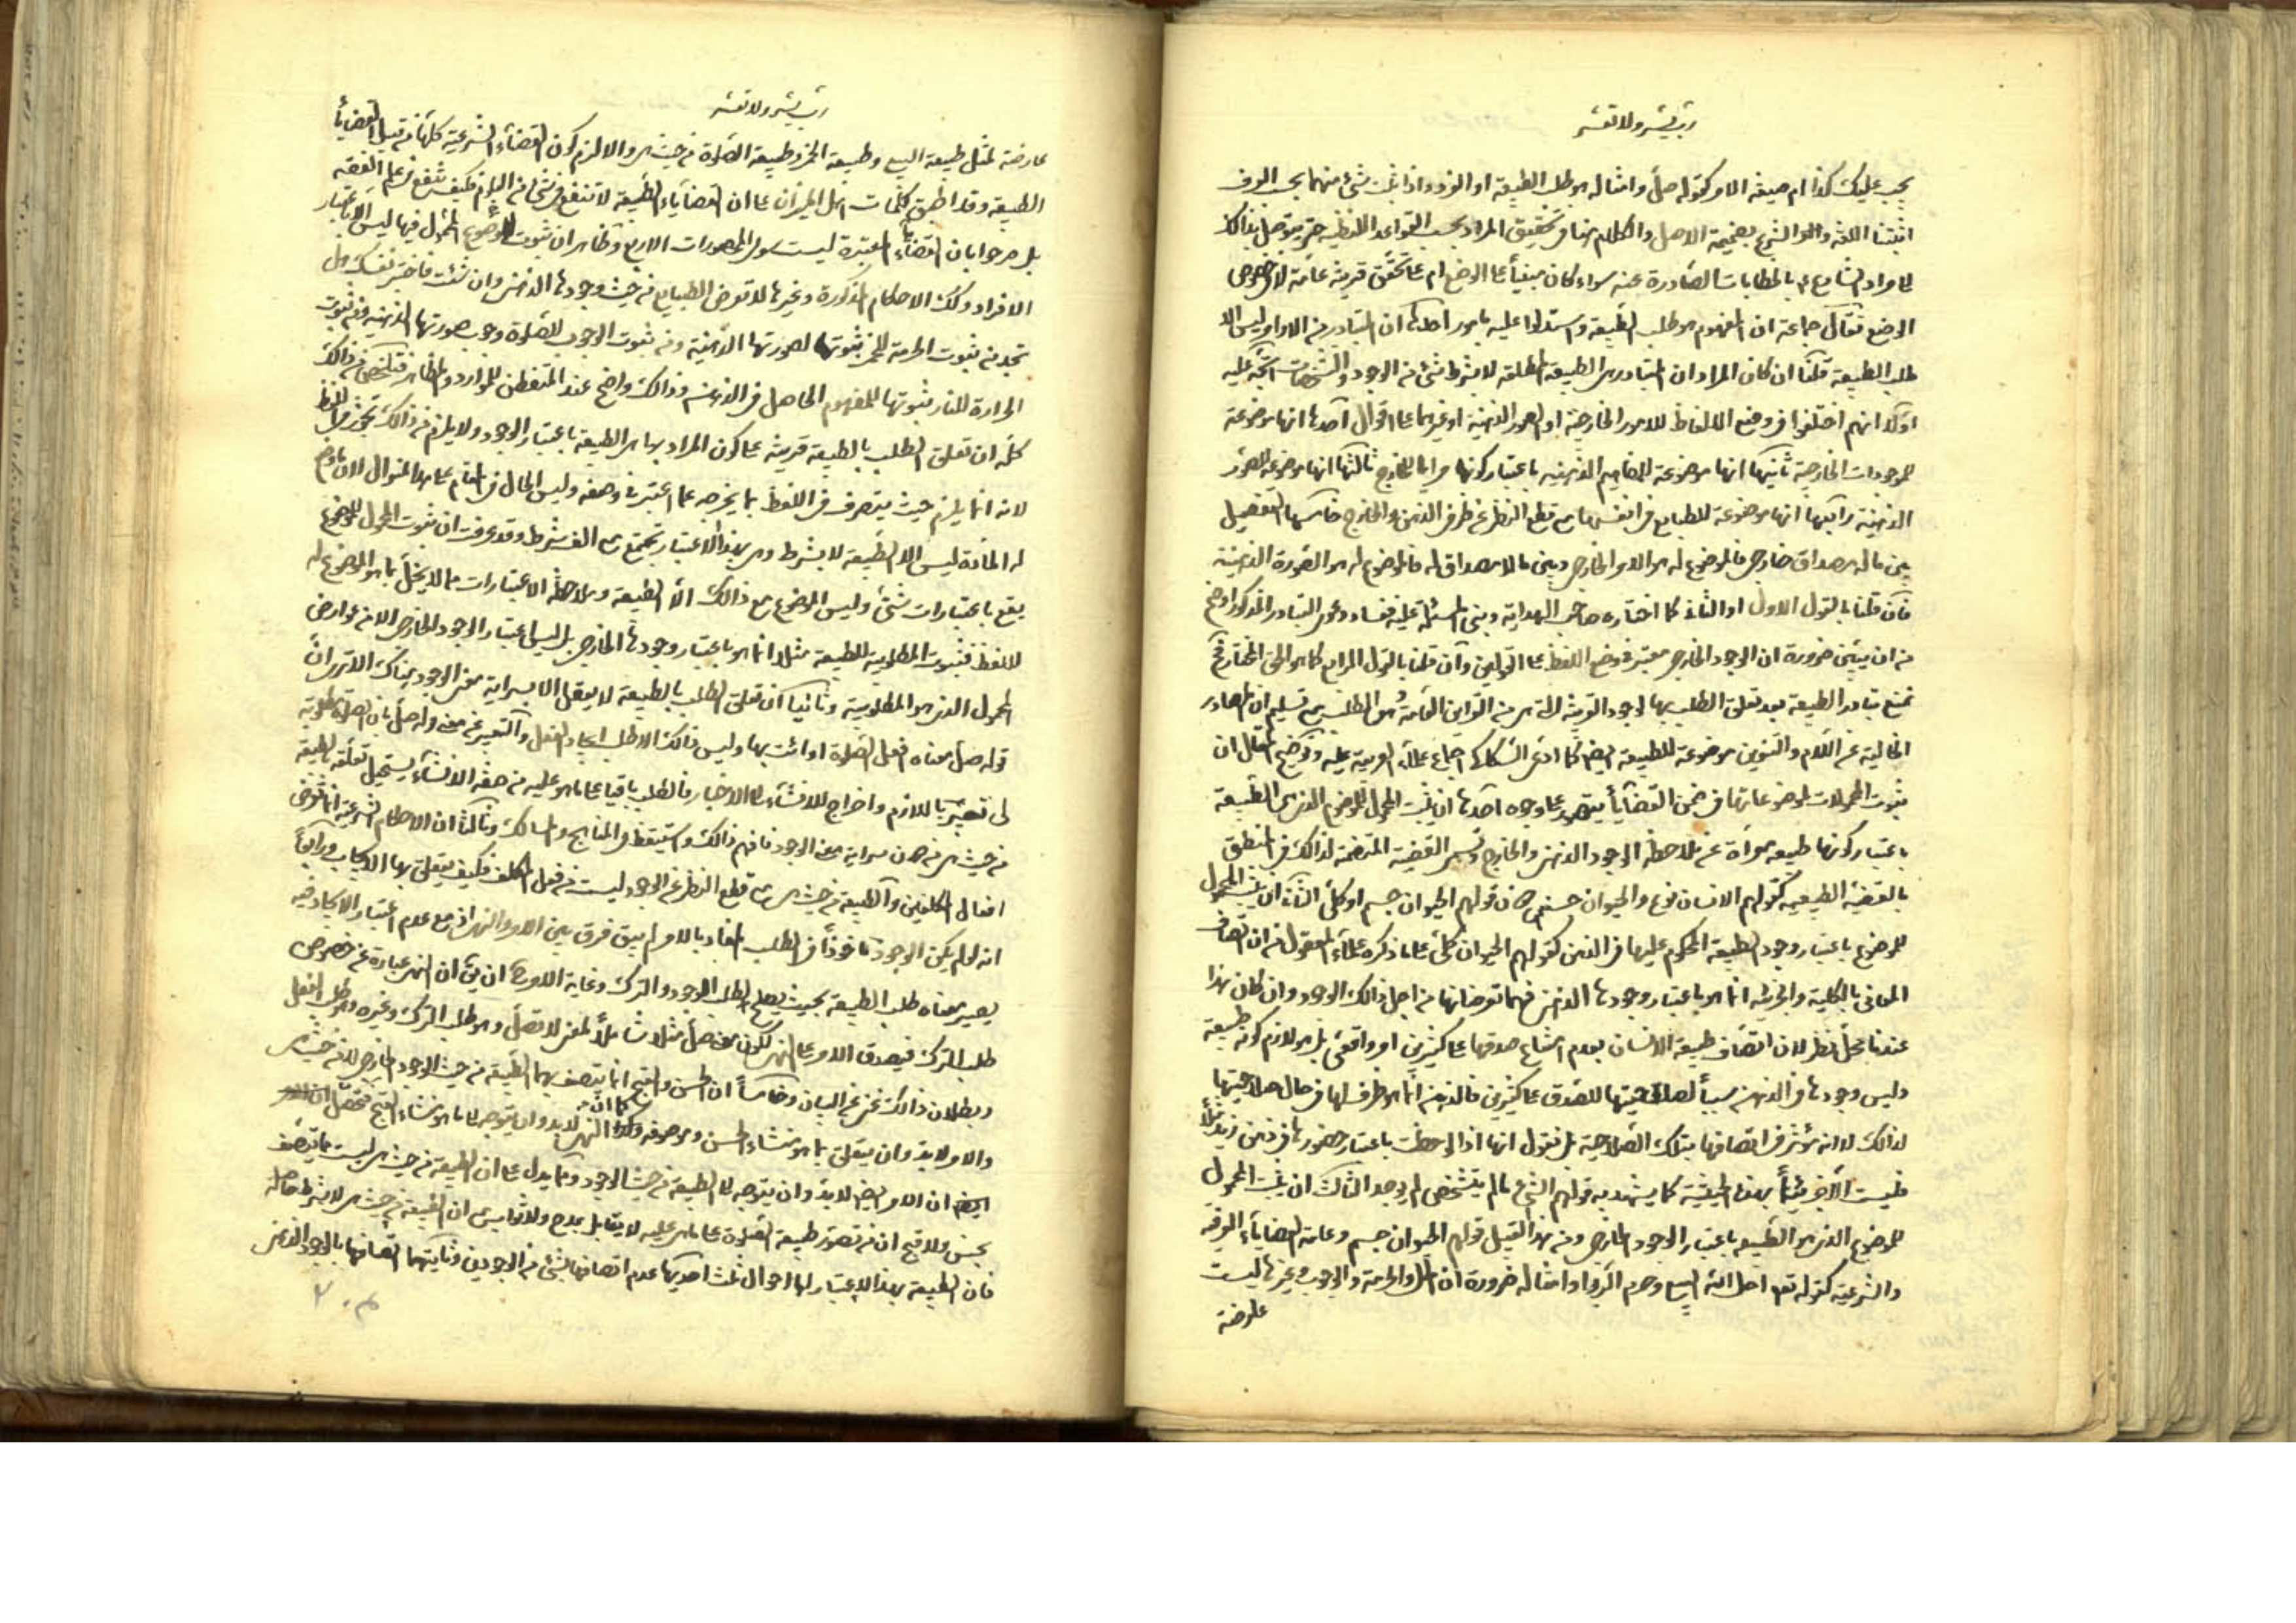 رب يسر ولا تعسر
يجب عليك كذا ام صيغة الامر كقوله صل وامثاله هو طلب الطبيعة او الفرد واذا ثبت شئ منهما بحسب العرف
اثبتنا اللغة والشرع بضميمة الاصل والكلام هنا في تحقيق المراد بحسب القواعد اللفظية حتى يتوصل بذلك
الى مراد الشارع بالخطابات الصادرة عنه سواء كان مبنيا على الوضع ام على تحقق قرينة عامة لا خصوص
الوضع فقال جماعة ان المفهوم هو طلب الطبيعة واستدلوا عليه بامور احدها ان المتبادر من الاوامر ليس الا
طلب الطبيعة قلنا ان كان المراد ان المتبادر هى الطبيعة المطلقة لا بشرط شئ من الوجود والتشخصات اتجه عليه
اولا انهم اختلفوا فى وضع الالفاظ للامور الخارجية او الصور الذهنية او غيرهما على اقوال احدها انها موضوعة
للموجودات الخارجية ثانيها انها موضوعة للمفاهيم الذهنية باعتبار كونها مرايا للخارج ثالثها انها موضوعة للصور
الذهنية رابعها انها موضوعة للطبايع فى انفسها مع قطع النظر عن ظرفى الذهن والخارج خامسها التفصيل
بين ما له مصداق خارجى فالموضوع له هو الامر الخارجى وبين ما لا مصداق له فالموضوع له هو الصورة الذهنية
فان قلنا بالقول الاول او الثانى كما اختاره صاحب الهداية وبنى المسئلة عليه ففساد دعوى التبادر المذكور اوضح
من ان يبين ضرورة ان الوجود الخارجى معتبر فى وضع اللفظ على القولين وان قلنا بالقول الرابع كما هو الحق المختار
نمنع تبادر الطبيعة بعد تعلق الطلب بها لوجود القرينة التى هى من القرائن العامة وهى الطلب مع تسليم ان المصادر
الخالية عن اللام والتنوين موضوعة للطبيعة ايضا كما ادعى السكاكى اجماع علماء العربية عليه وتوضيح المقال ان
ثبوت المحمولات لموضوعاتها فى ضمن القضايا يتصور على وجوه احدها ان يثبت المحمول للموضوع الذى هى الطبيعة
باعتبار كونها طبيعة معراة عن ملاحظة الوجود الذهنى والخارجى وتسمى القضية المتضمنة لذلك فى المنطق
بالقضية الطبيعية كقولهم الانسان نوع والحيوان جنس دون قولهم الحيوان جسم او كلى الثانى ان يثبت المحمول
للموضوع باعتبار وجود الطبيعة المحكوم عليها فى الذهن كقولهم الحيوان كلى على ما ذكره علماء المعقول من ان اتصاف
المعانى بالكلية والجزئية انما هو باعتبار وجودها الذهنى فهما تعرضانها من اجل ذلك الوجود وان كان هذا
عندنا محل نظر لان اتصاف طبيعة الانسان بعدم امتناع صدقها على كثيرين امر واقعى بل هو لازم كونه طبيعة
وليس وجودها فى الذهن سببا لصلاحيتها للصدق على كثيرين فالذهن انما هو ظرف لها فى حال صلاحيتها
لذلك لا انه مؤثر فى اتصافها بتلك الصلاحية بل نقول انها اذا لوحظت باعتبار حضورها فى ذهن زيد مثلا
فليست الا جزئيا بهذه الحيثية كما يشهد به قولهم الشئ ما لم يتشخص لم يوجد الثالث ان يثبت المحمول
للموضوع الذى هو الطبيعة باعتبار الوجود الخارجى ومن هذا القبيل قولهم الحيوان جسم وعامة القضايا العرفية
والشرعية كقوله تعم احل الله البيع وحرم الربوا وامثاله ضرورة ان الحل والحرمة والوجوب وغيرها ليست
عارضة
رب يسر ولا تعسر
عارضة لمثل طبيعة البيع وطبيعة الخمر وطبيعة الصلوة من حيث هى والا لزم كون القضايا الشرعية كلها من قبيل القضايا
الطبيعية وقد اطبق كلمات اهل الميزان على ان القضايا الطبيعية لا تنفع فى شئ من العلوم فكيف تنفع فى علم الفقه
بل صرحوا بان القضايا المعتبرة ليست سوى المحصورات الاربع وظاهر ان ثبوت المحمول فيها ليس الا باعتبار
الافراد وكك الاحكام المذكورة وغيرها لا تعرض الطبايع من حيث وجودها الذهنى وان شئت فاختبر نفسك هل
تجد من ثبوت الحرمة للخمر ثبوتها لصورتها الذهنية ومن ثبوت الوجوب للصلوة وجوب صورتها الذهنية ومن ثبوت
الحرارة للنار ثبوتها للمفهوم الحاصل فى الذهن وذلك واضح عند المتفطن للموارد والمظاهر فتلخص من ذلك
كله ان تعلق الطلب بالطبيعة قرينة على كون المراد بها هى الطبيعة باعتبار الوجود ولا يلزم من ذلك تجوز فى اللفظ
لانه انما يلزم حيث يتصرف فى اللفظ بما يخرجه عما اعتبر فى وضعه وليس الحال فى المقام على هذا المنوال لان ما وضع
له المادة ليس الا الطبيعة لا بشرط وهى بهذا الاعتبار تجتمع مع الف شرط وقد عرفت ان ثبوت المحمول للموضوع
يقع باعتبارات شتى وليس الموضوع مع ذلك الا الطبيعة وملاحظة الاعتبارات مما لا يخل بما هو الموضوع له
للفظ فثبوت المطلوبية للطبيعة مثلا انما هو باعتبار وجودها الخارجى بل ليس اعتبار الوجود الخارجى الا من عوارض
المحمول الذى هو المطلوبية وثانيا ان تعلق الطلب بالطبيعة لا يعقل الا بسراية معنى الوجود هناك الا ترى ان
قوله صل معناه افعل الصلوة او ائت بها وليس ذلك الا طلب ايجاد الفعل والتعبير عن معنى قوله صل بان الصلوة مطلوبة
لى تعبير باللازم واخراج للانشاء الى الاخبار فالطلب باقيا على ما هو عليه من صفة الانشاء يستحيل تعلقه بالطبيعة
من حيث هى من دون سراية معنى الوجود فافهم ذلك واستيقظ والمناهج والمسالك وثالثا ان الاحكام الشرعية انما تعرض
افعال المكلفين والطبيعة من حيث هى مع قطع النظر عن الوجود ليست من فعل المكلف فكيف يتعلق بها الايجاب ورابعا
انه لو لم يكن الوجود ماخوذا فى الطلب المفاد بالامر لم يبق فرق بين الامر والنهى اذ مع عدم اعتبار الايجاد فيه
يصير معناه طلب الطبيعة بحيث يصلح لطلب الوجود والترك وغاية الامر ان يق ان النهى عبارة عن خصوص
طلب الترك فيصدق الامر على النهى لكون معنى صل مثلا شاملا لمعنى لا تصل وهو طلب الترك وغيره وهو طلب الفعل
وبطلان ذلك غنى عن البيان وخامسا ان الحسن والقبح انما يتصف بهما الطبيعة من حيث الوجود الخارجى لا من حيث هى
والامر لا بد وان يتعلق بما هو منشاء الحسن وموصوفه كما ان النهى لا بد وان يتوجه الى ما هو منشاء القبح فتحصل ان
ايضا ان الامر ايضا لا بد وان يتوجه الى الطبيعة من حيث الوجود ومما يدل على ان الطبيعة من حيث هى ليست مما يتصف
بحسن ولا قبح ان من تصور طبيعة الصلوة على ما هى عليه لا يقابل بمدح ولا ثواب ان الطبيعة من حيث هى لا بشرط حاصله
فان الطبيعة بهذا الاعتبار لها احوال ثلث احديها عدم اتصافها بشئ من الوجودين وثانيتهما اتصافها بالوجود الذهنى